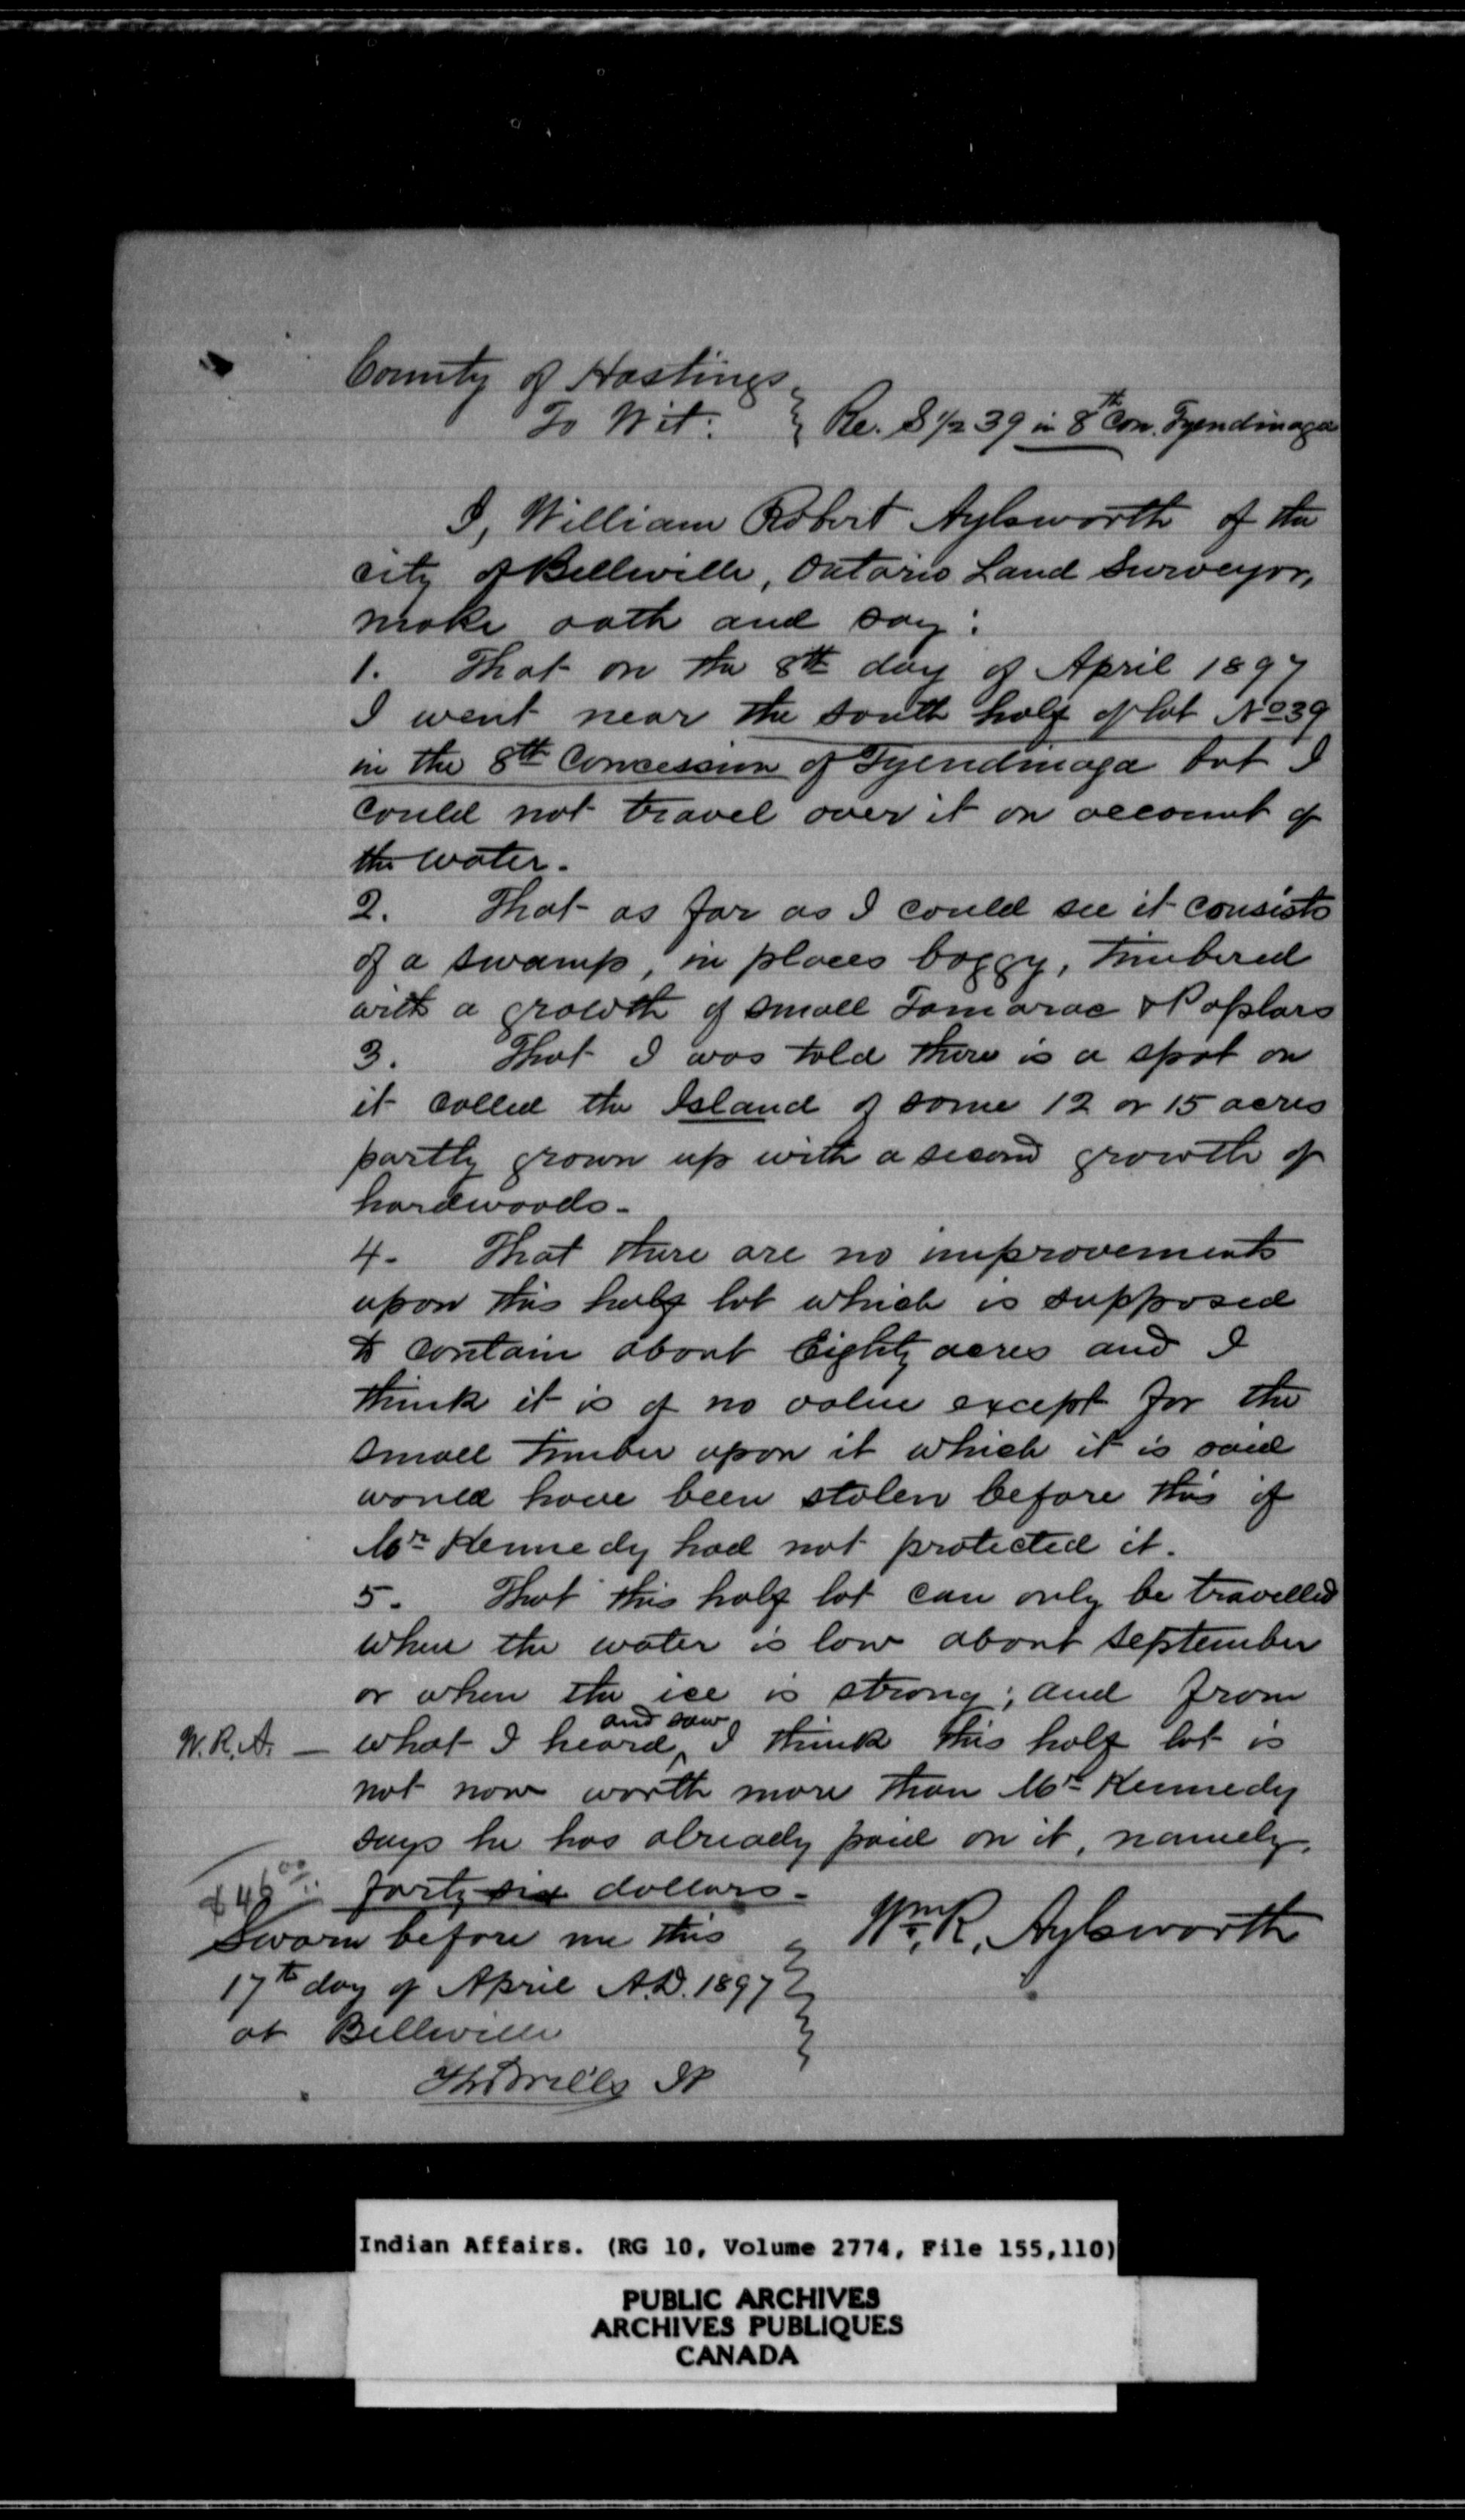 County of Hastings
To Wit: } Re. S 1/2 39 in 8th Con. Tyendinaga
I, William Robert Aylsworth of the
city of Belleville, Ontario Land Surveyor,
make oath and say:
1. That on the 8th day of April 1897
I went near the south half of lot No 39
in the 8th Concession of Tyendinaga but I
could not travel over it on account of
the water.
2. That as far as I could see it consists
of a swamp, in places boggy, timbered
with a growth of small Tamarac & Poplars
3. That I was told there is a spot on
it called the Island of some 12 or 15 acres
partly grown up with a second growth of
hardwoods.
4. That there are no improvements
upon this half lot which is supposed
to contain about Eighty acres and I
think it is of no value except for the
small timber upon it which it is said
would have been stolen before this if
Mr Kennedy had not protected it.
5. That this half lot can only be travelled
when the water is low about September
or when the ice is strong; and from
W.R.A. — what I heard and saw, I think this half lot is
not now worth more than Mr Kennedy
says he has already paid on it, namely,
$46.00 forty six dollars.
Sworn before me this } Wm. R. Aylsworth
17th day of April A.D. 1897
at Belleville
JP
Indian Affairs. (RG 10, Volume 2774, File 155,110)
PUBLIC ARCHIVES
ARCHIVES PUBLIQUES
CANADA